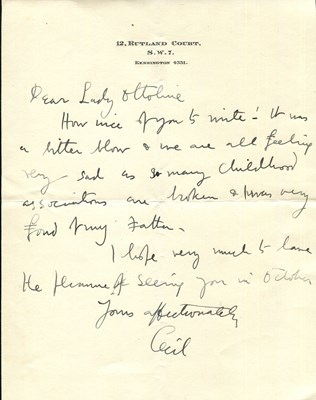 12, RUTLAND COURT,
S.W. 7.
KENSINGTON 4351.
Dear Lady Ottoline
How nice of you to write! It was
a bitter blow & we are all feeling
very sad as so many childhood
associations are broken & I was very
fond of my Father.
I hope very much to have
the pleasure of seeing you in October
Yours affectionately
Cecil